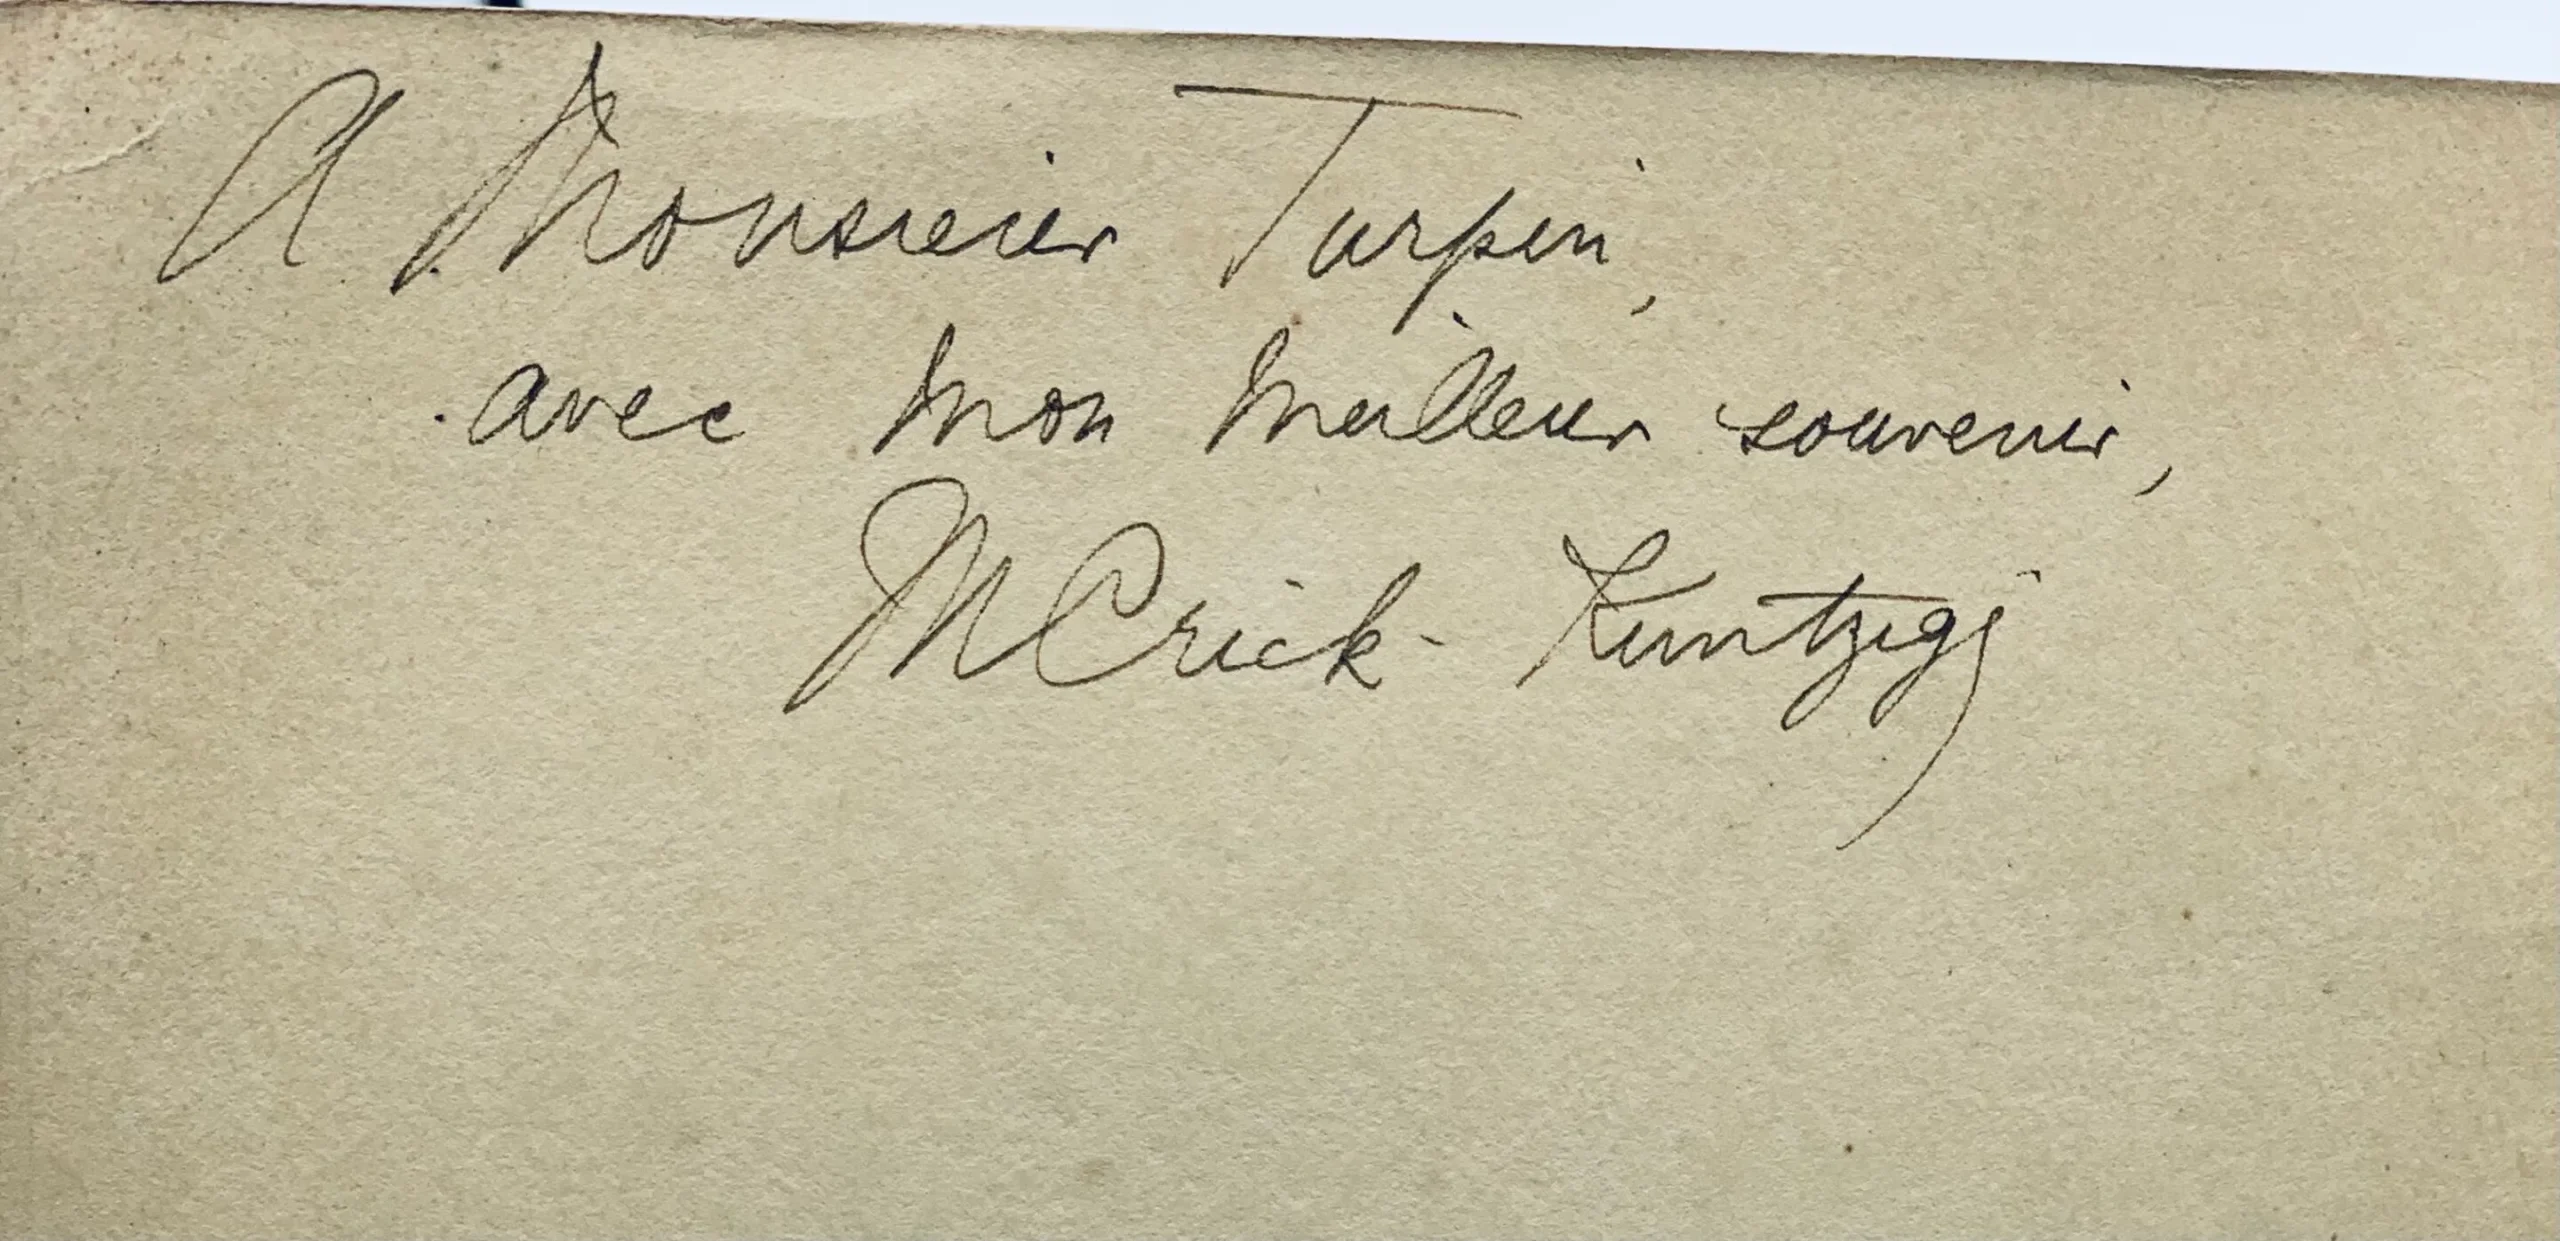 A Monsieur Turpin,
avec mon meilleur souvenir,
MCrick-Kuntziger